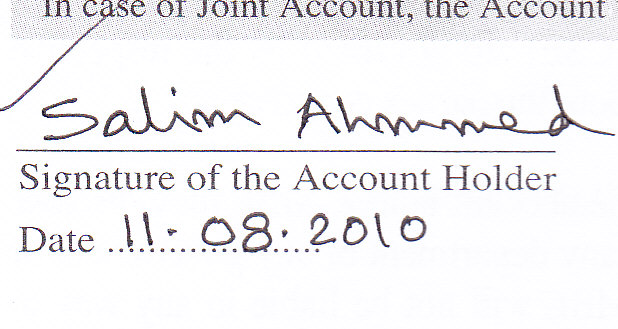 In case of Joint Account, the Account
Salim Ahmmed
Signature of the Account Holder
Date ........................ 11. 08. 2010